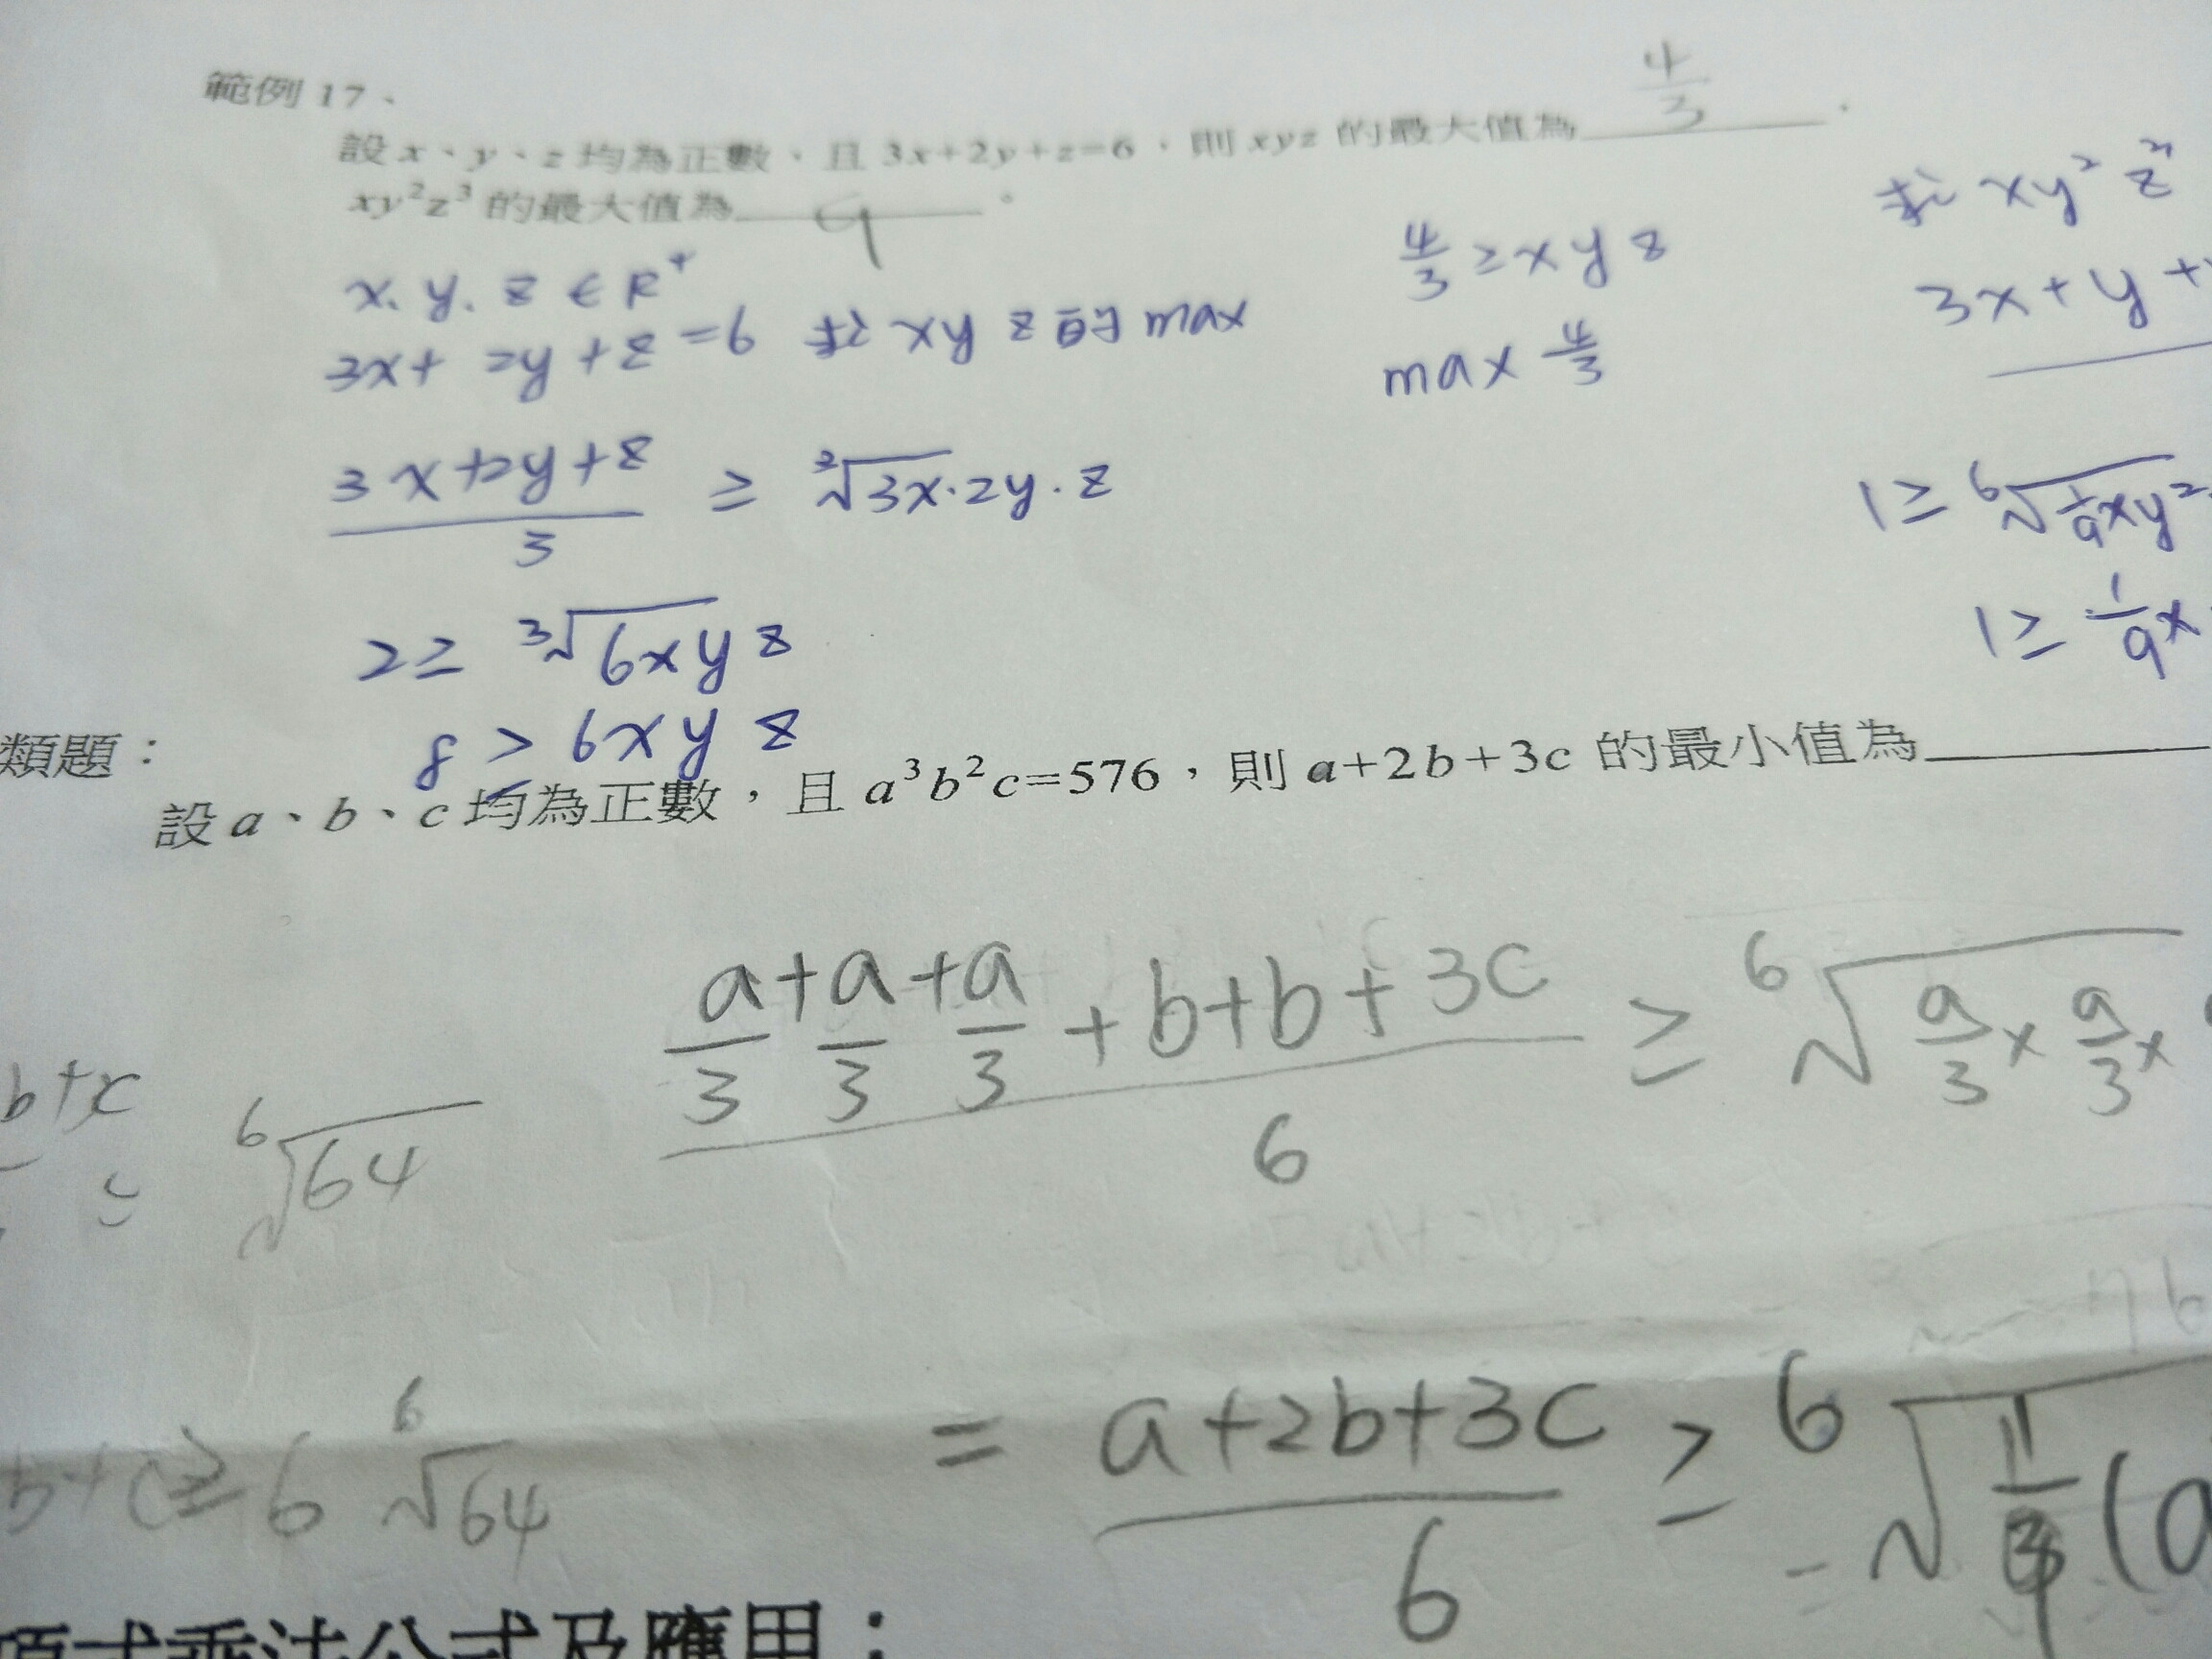 範例 17、
設 x、y、z 均為正數,且 3x+2y+z=6,則 xyz 的最大值為 4/3 。
xy²z³ 的最大值為 9 。
x. y. z ∈ R⁺
3x+ 2y+z =6 求 xyz 的 max
(3x+2y+z)/3 ≥ ³√3x·2y·z
2≥ ³√6xyz
8 ≥ 6xyz
4/3 ≥ xyz
max 4/3
求 xy²z³
3x+y+
1≥ ⁶√(1/9)xy²
1≥ 1/9 x
類題:
設 a、b、c 均為正數,且 a³b²c=576,則 a+2b+3c 的最小值為
(a/3+a/3+a/3+b+b+3c)/6 ≥ ⁶√a/3×a/3×
b+c
⁶√64
= (a+2b+3c)/6 ≥ ⁶√
b+c≥6 ⁶√64
項式乘法公式及應用: